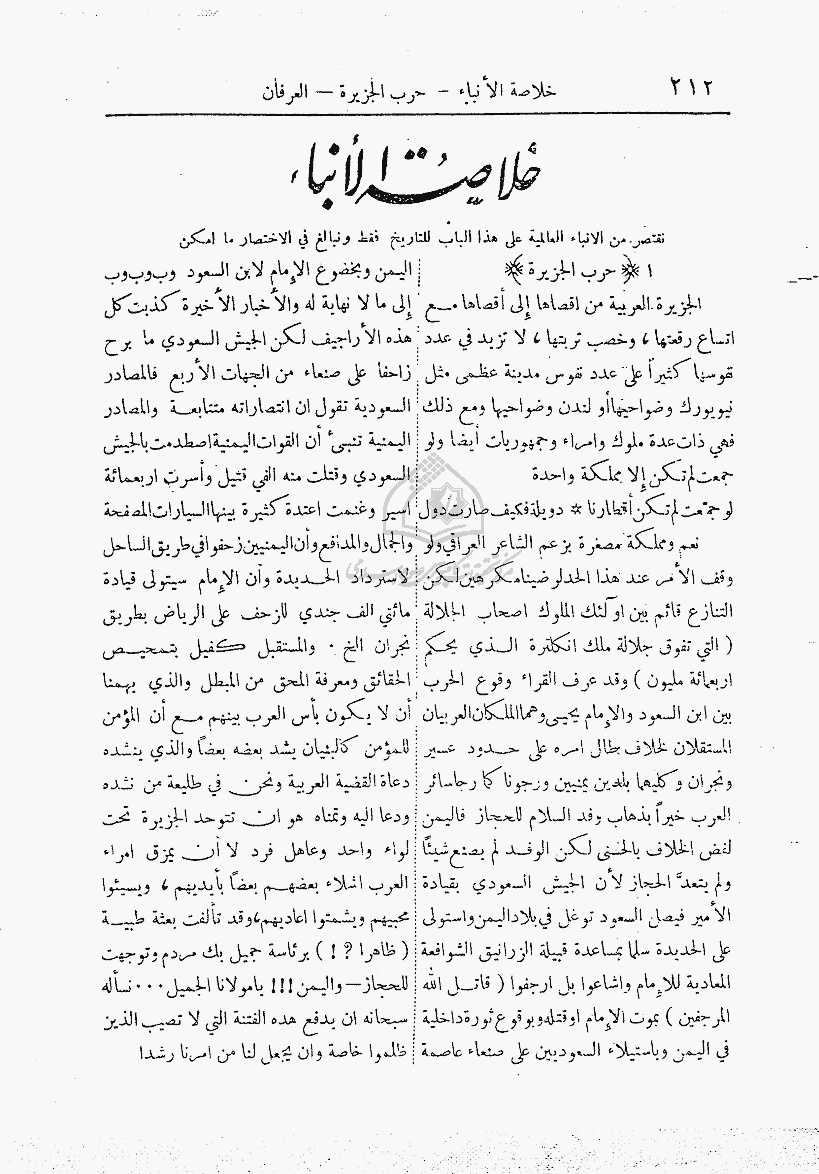 ٢١٢
خلاصة الأنباء – حرب الجزيرة – العرفان
خلاصة الأنباء
نقتصر من الانباء العالمية على هذا الباب للتاريخ فقط ونبالغ في الاختصار ما امكن
١ ﴿ حرب الجزيرة ﴾
الجزيرة العربية من اقصاها إلى أقصاها مع
اتساع رقعتها ، وخصب تربتها ، لا تزيد في عدد
نفوسها كثيراً على عدد نفوس مدينة عظمى مثل
نيويورك وضواحيها أو لندن وضواحيها ومع ذلك
فهي ذات عدة ملوك وامراء وجمهوريات أيضا ولو
جمعت لم تكن إلا مملكة واحدة
لو جمّعت لم تكن أقطارنا * دويلة فكيف صارت دول
نعم ومملكة مصغرة بزعم الشاعر العراقي ولو
وقف الأمر عند هذا الحد لرضينا مكرهين لكن
التنازع قائم بين اولئك الملوك اصحاب الجلالة
( التي تفوق جلالة ملك انكلترة الذي يحكم
اربعمائة مليون ) وقد عرف القراء وقوع الحرب
بين ابن السعود والإمام يحيى وهما الملكان العربيان
المستقلان لخلاف طال امره على حدود عسير
ونجران وكليهما بلدين يمنيين ورجونا كما رجا سائر
العرب خيراً بذهاب وفد السلام للحجاز فاليمن
لفض الخلاف بالحسنى لكن الوفد لم يصنع شيئًا
ولم يتعدَّ الحجاز لأن الجيش السعودي بقيادة
الأمير فيصل السعود توغل في بلاد اليمن واستولى
على الحديدة سلما بمساعدة قبيلة الزرانيق الشوافعة
المعادية للإمام واشاعوا بل ارجفوا ( قاتل الله
المرجفين ) بموت الإمام او قتله وبوقوع ثورة داخلية
في اليمن وباستيلاء السعوديين على صنعاء عاصمة
اليمن وبخضوع الإمام لابن السعود وب وب وب
إلى ما لا نهاية له والأخبار الأخيرة كذبت كل
هذه الأراجيف لكن الجيش السعودي ما برح
زاحفا على صنعاء من الجهات الأربع فالمصادر
السعودية تقول ان انتصاراته متتابعة والمصادر
اليمنية تنبئ أن القوات اليمنية اصطدمت بالجيش
السعودي وقتلت منه الفي قتيل وأسرت اربعمائة
اسير وغنمت اعتدة كثيرة بينها السيارات المصفحة
والجمال والمدافع وأن اليمنيين زحفوا في طريق الساحل
لاسترداد الحديدة وأن الإمام سيتولى قيادة
مائتي الف جندي للزحف على الرياض بطريق
نجران الخ . والمستقبل كفيل بتمحيص
الحقائق ومعرفة المحق من المبطل والذي يهمنا
أن لا يكون بأس العرب بينهم مع أن المؤمن
للمؤمن كالبنيان يشد بعضه بعضًا والذي ينشده
دعاة القضية العربية ونحن في طليعة من نشده
ودعا اليه وتمناه هو ان تتوحد الجزيرة تحت
لواء واحد وعاهل فرد لا أن يمزق امراء
العرب اشلاء بعضهم بعضًا بأيديهم ، ويسيئوا
محبيهم ويشمتوا اعاديهم، وقد تألفت بعثة طبية
( ظاهرا ؟ ! ) برئاسة جميل بك مردم وتوجهت
للحجاز – واليمن !!! يا مولانا الجميل ... نسأله
سبحانه ان يدفع هذه الفتنة التي لا تصيب الذين
ظلموا خاصة وان يجعل لنا من امرنا رشدا